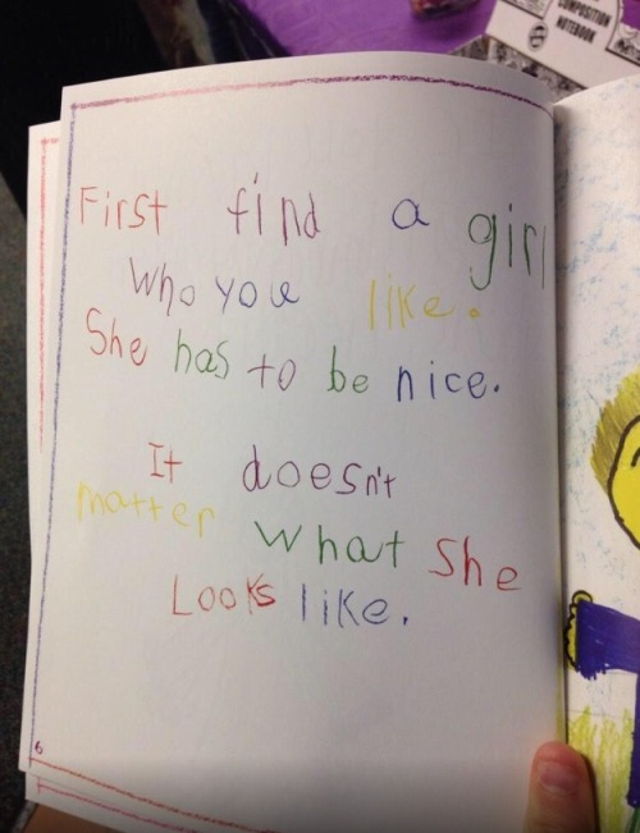 COMPOSITION
NOTEBOOK
First find a girl
Who you like.
She has to be nice.
It doesn't
matter what she
Looks like.
6